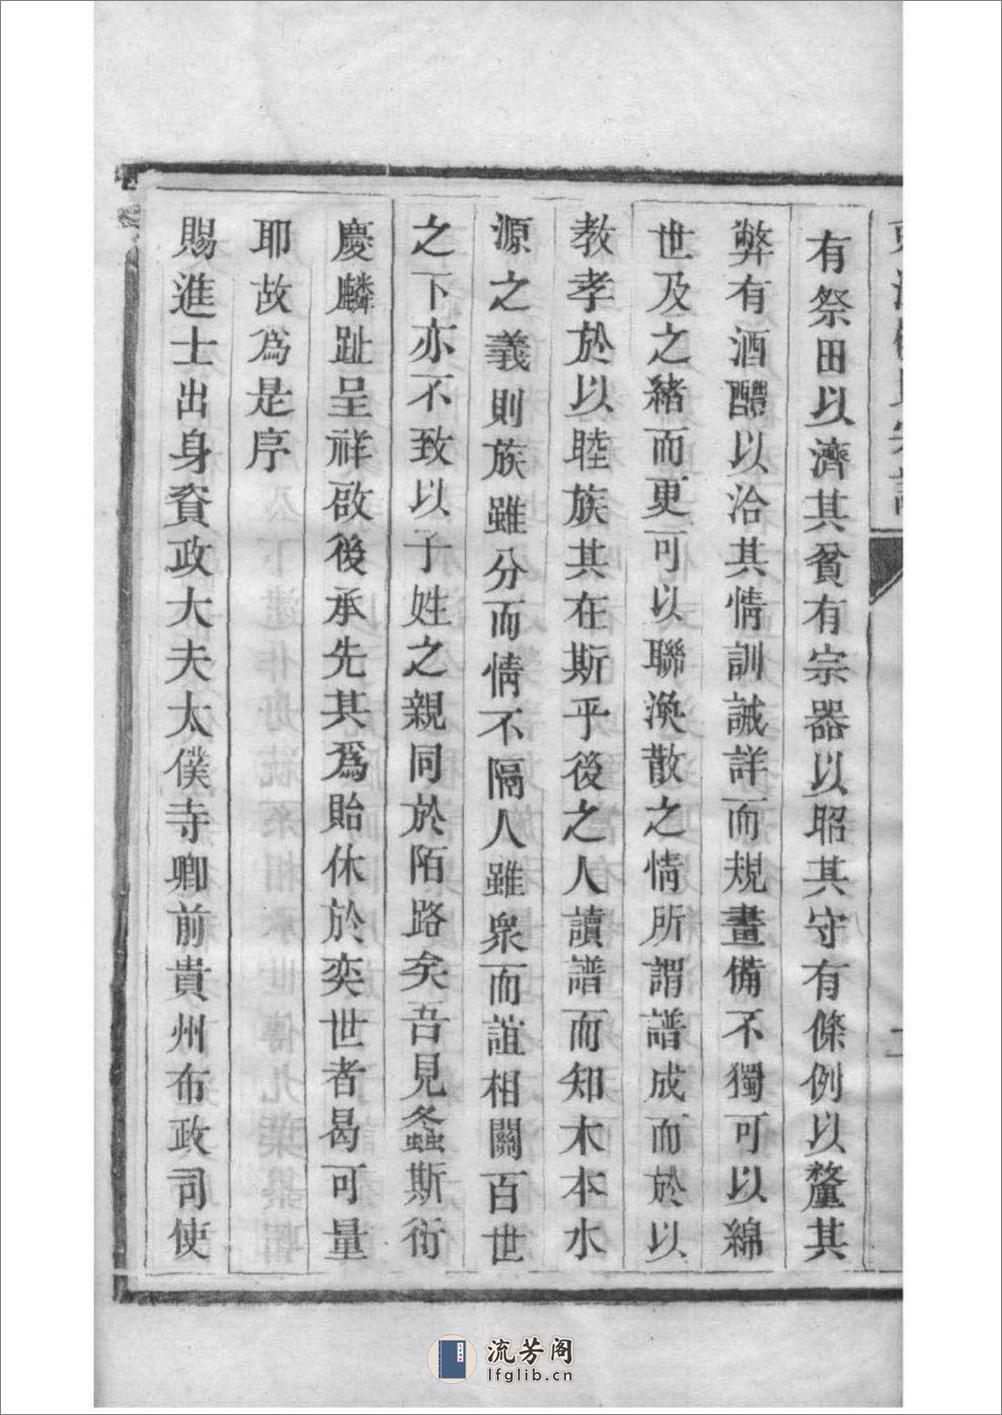 有祭田以濟其貧有宗器以昭其守有條例以釐其
弊有酒醴以洽其情訓誡詳而規畫備不獨可以綿
世及之緒而更可以聯渙散之情所謂譜成而於以
教孝於以睦族其在斯乎後之人讀譜而知木本水
源之義則族雖分而情不隔人雖衆而誼相關百世
之下亦不致以子姓之親同於陌路矣吾見螽斯衍
慶麟趾呈祥啟後承先其爲貽休於奕世者曷可量
耶故爲是序
賜進士出身資政大夫太僕寺卿前貴州布政司使
流芳阁
lfglib.cn